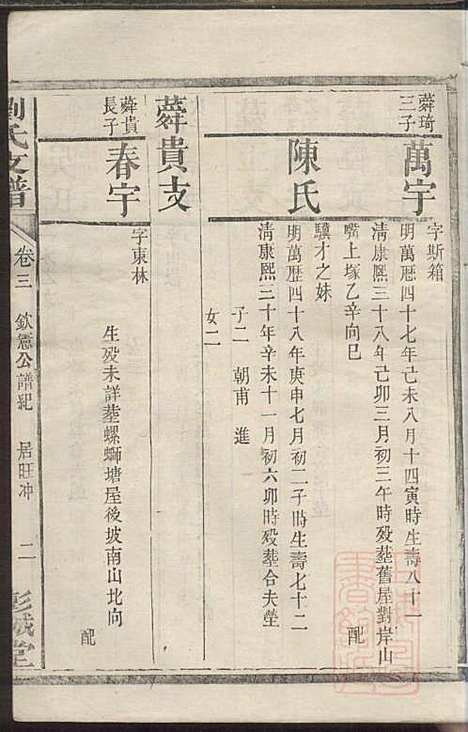 蕣琦
三子
萬宇
字斯箱
明萬曆四十七年己未八月十四寅時生壽八十一
清康熙三十八年己卯三月初三午時殁塟舊屋對岸山
嘴上塚乙辛向巳
配
陳氏
驥才之妹
明萬歷四十八年庚申七月初二子時生壽七十二
清康熙三十年辛未十一月初六卯時殁塟合夫塋
子二 朝甫 進
女二
蕣貴支
蕣貴
長子
春宇
字東林
生殁未詳塟螺螄塘屋後坡南山北向
配
劉氏支譜
卷三 欽憲公譜紀 居旺冲 二
彭城堂